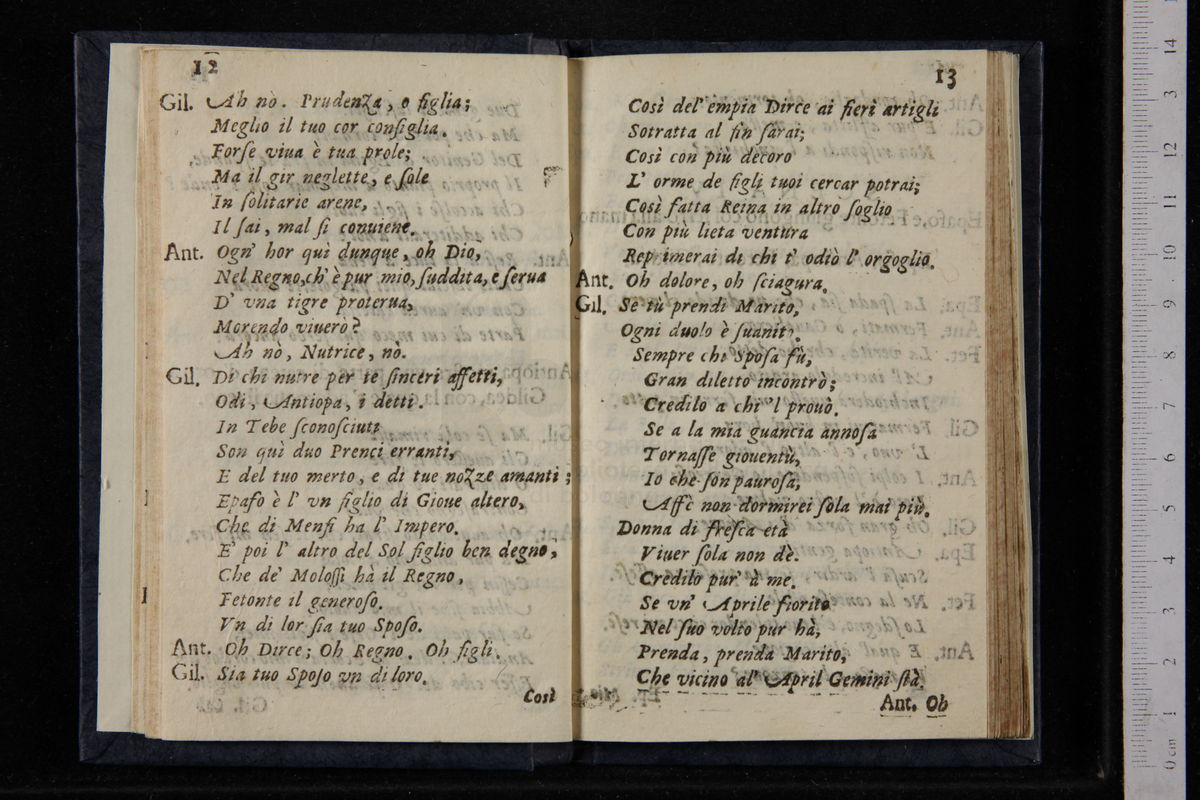 12
Gil. Ah nò. Prudenza, o figlia;
Meglio il tuo cor configlia.
Forſe viua è tua prole;
Ma il gir neglette, e ſole
In ſolitarie arene,
Il ſai, mal ſi conuiene.
Ant. Ogn' hor quì dunque, oh Dio,
Nel Regno, ch' è pur mio, ſuddita, e ſerua
D' vna tigre proterua,
Morendo viuerò?
Ah nò, Nutrice, nò.
Gil. Di chi nutre per te ſinceri affetti,
Odi, Antiopa, i detti.
In Tebe ſconoſciuti
Son quì duo Prenci erranti,
E del tuo merto, e di tue nozze amanti;
Epafo è l' vn figlio di Gioue altero,
Che di Menfi ha l' Impero.
E' poi l' altro del Sol figlio ben degno,
Che de' Moloſſi hà il Regno,
Fetonte il generoſo.
Vn di lor ſia tuo Spoſo.
Ant. Oh Dirce; Oh Regno. Oh figli.
Gil. Sia tuo Spoſo vn di loro.
Così
13
Così del' empia Dirce ai fieri artigli
Sotratta al fin ſarai;
Così con più decoro
L' orme de figli tuoi cercar potrai;
Così fatta Reina in altro ſoglio
Con più lieta ventura
Reprimerai di chi t' odiò l' orgoglio.
Ant. Oh dolore, oh ſciagura.
Gil. Se tù prendi Marito,
Ogni duolo è ſuanito.
Sempre chi Spoſa fù,
Gran diletto incontrò;
Credilo a chi 'l prouò.
Se a la mia guancia annoſa
Tornaſſe giouentù,
Io che ſon pauroſa,
Affè non dormirei ſola mai più.
Donna di freſca età
Viuer ſola non dè.
Credilo pur' à me.
Se vn' Aprile fiorito
Nel ſuo volto pur hà,
Prenda, prenda Marito,
Che vicino al' April Gemini ſtà.
Ant. Oh